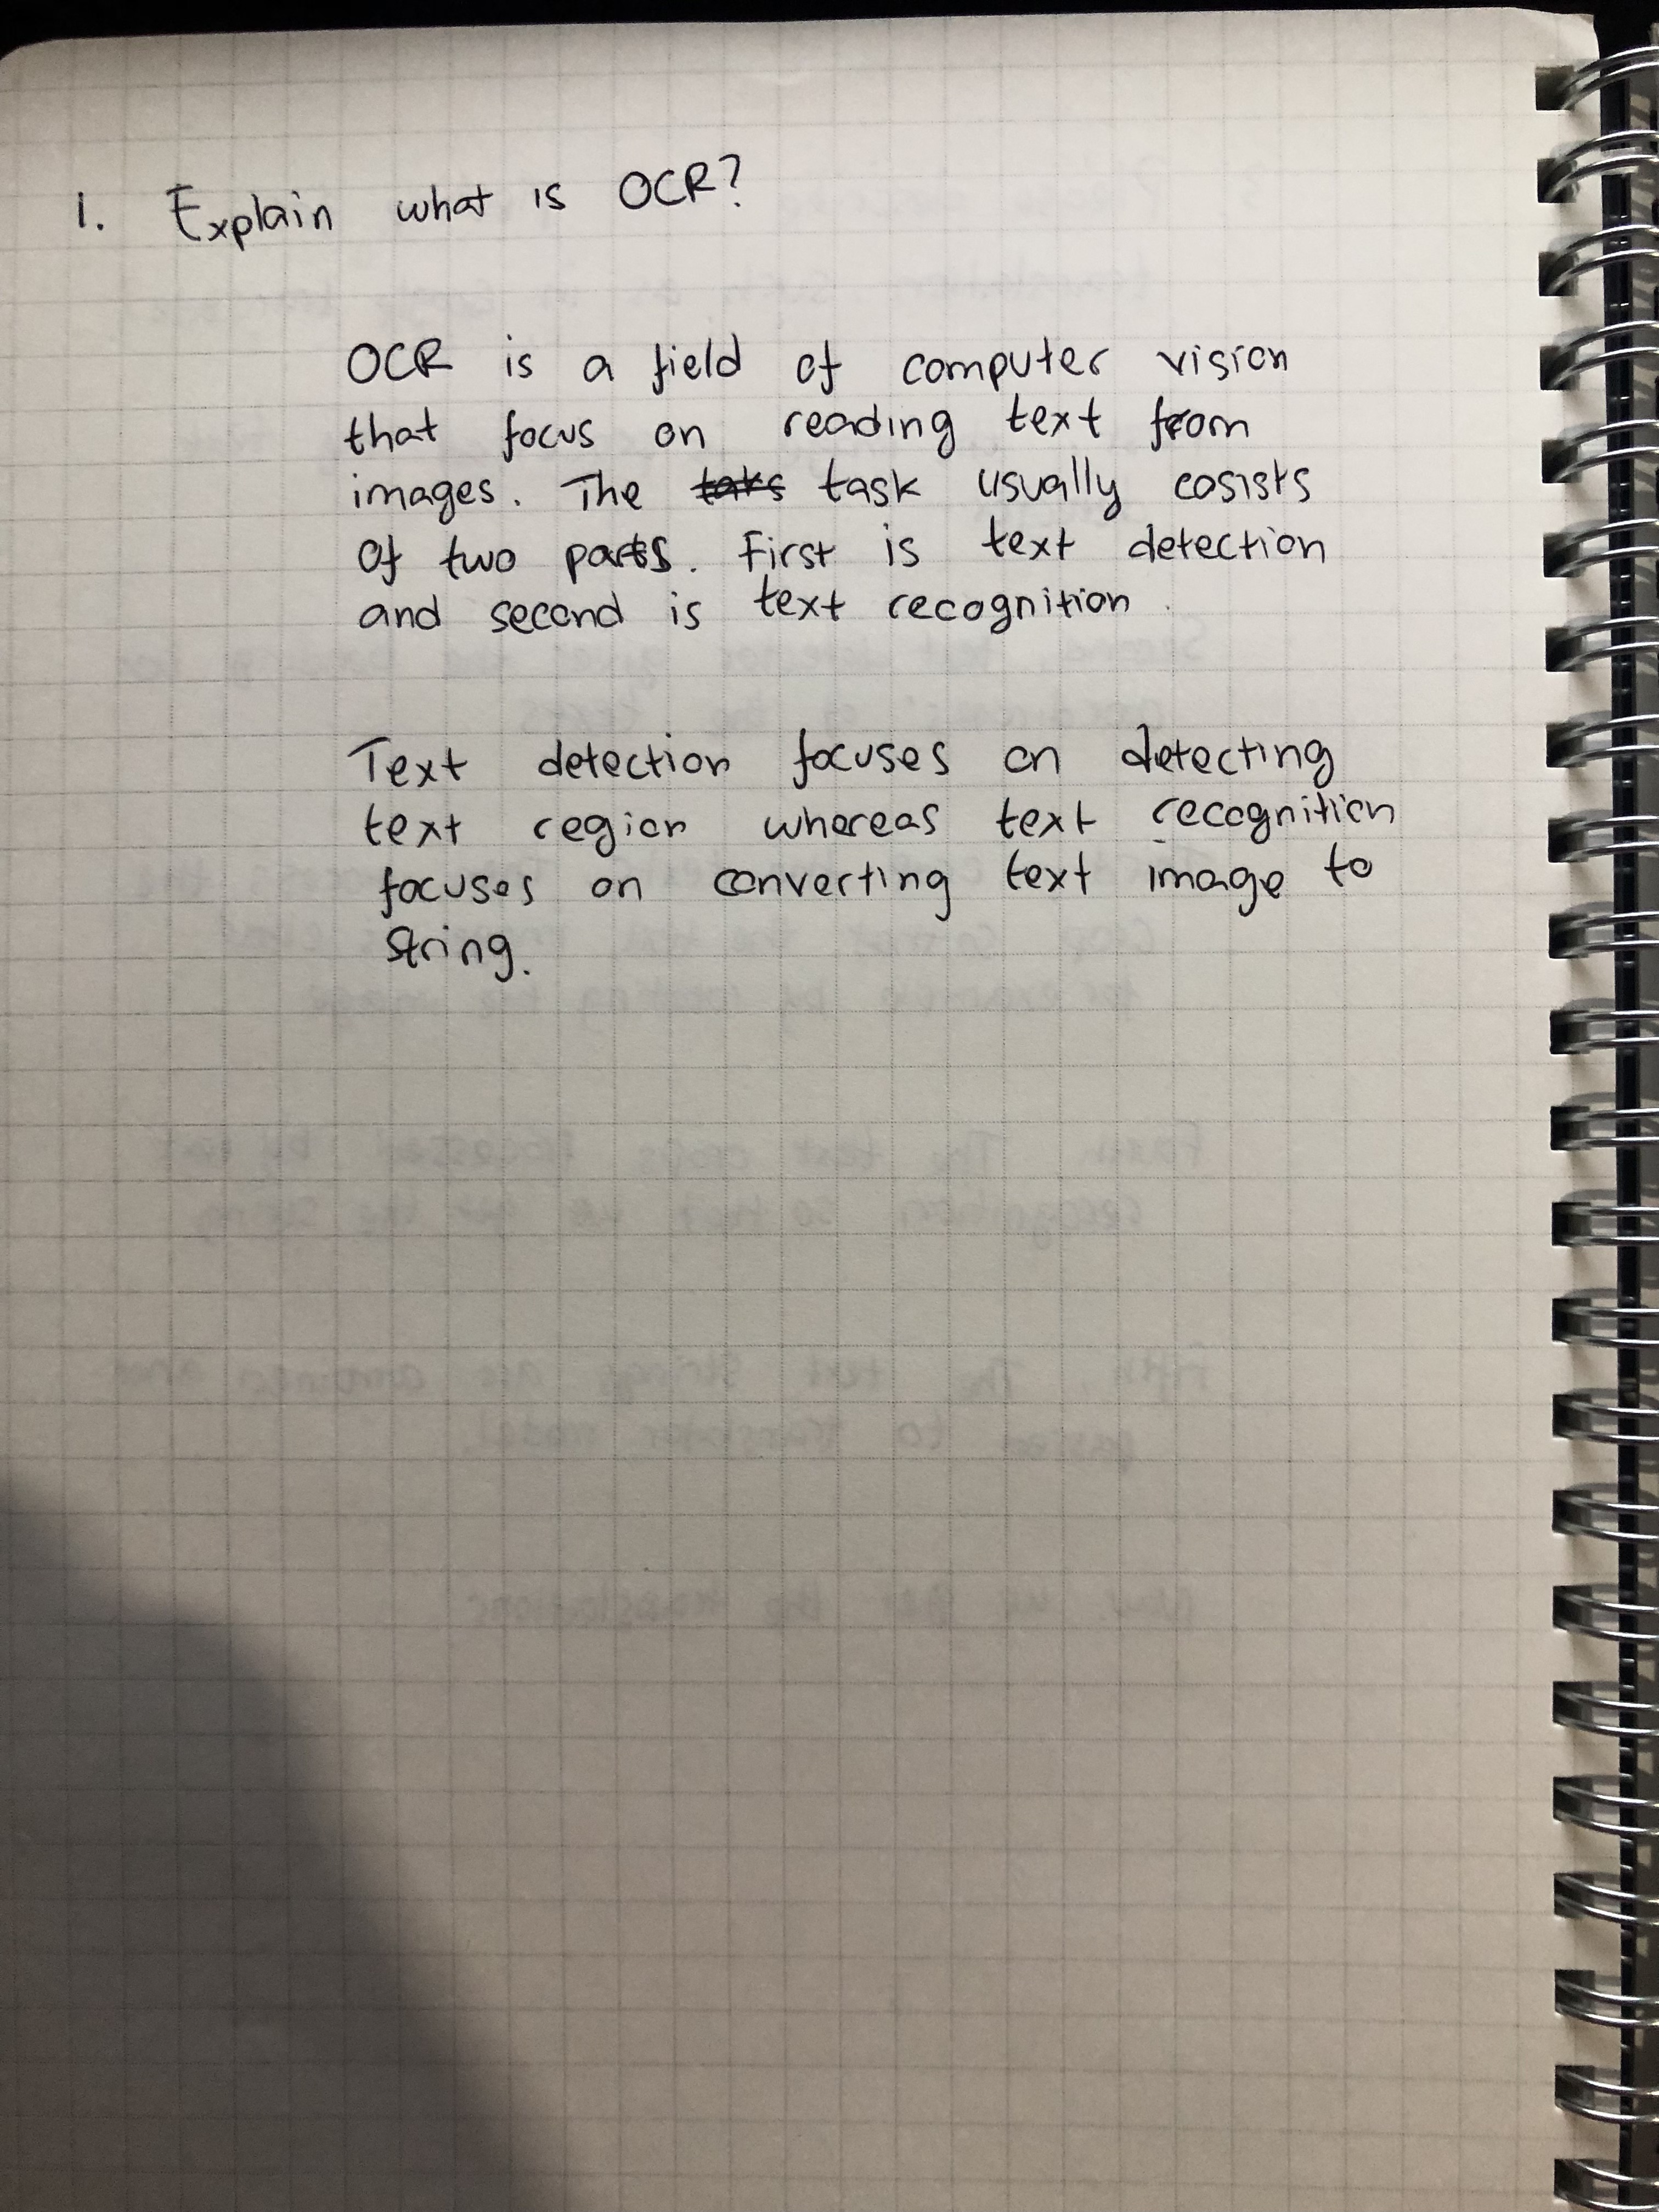 1. Explain what is OCR?
OCR is a field of computer vision
that focus on reading text from
images. The taks task usually cosists
of two parts. First is text detection
and second is text recognition.
Text detection focuses on detecting
text region whereas text recognition
focuses on converting text image to
string.